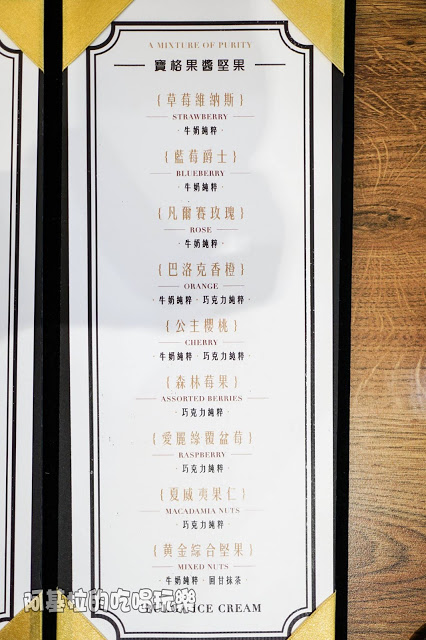 A MIXTURE OF PURITY
寶格果醬堅果
{草莓維納斯}
STRAWBERRY
·牛奶純粹·
{藍莓爵士}
BLUEBERRY
·牛奶純粹·
{凡爾賽玫瑰}
ROSE
·牛奶純粹·
{巴洛克香橙}
ORANGE
·牛奶純粹·巧克力純粹·
{公主櫻桃}
CHERRY
·牛奶純粹·巧克力純粹·
{森林莓果}
ASSORTED BERRIES
·巧克力純粹·
{愛麗絲覆盆莓}
RASPBERRY
·巧克力純粹·
{夏威夷果仁}
MACADAMIA NUTS
·巧克力純粹·
{黃金綜合堅果}
MIXED NUTS
·牛奶純粹·回甘抹茶·
ICE CREAM
阿基拉的吃喝玩樂